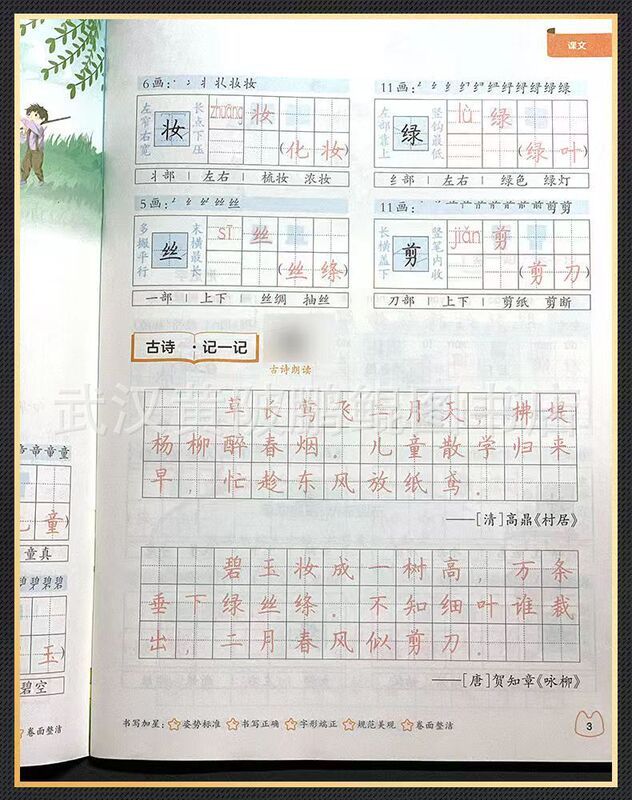 课文
6画：丶 丷 丬 丬 妆 妆
左窄右宽
妆
长点下压
zhuāng
妆
（化妆）
丬部 | 左右 | 梳妆 浓妆
11画：
左部靠上
绿
竖钩最低
lǜ
绿
（绿叶）
纟部 | 左右 | 绿色 绿灯
5画：
多撇平行
丝
末横最长
sī
丝
（丝绦）
一部 | 上下 | 丝绸 抽丝
11画：
长横盖下
剪
竖笔内收
jiǎn
剪
（剪刀）
刀部 | 上下 | 剪纸 剪断
古诗·记一记
古诗朗读
草长莺飞二月天，拂堤
杨柳醉春烟。儿童散学归来
早，忙趁东风放纸鸢。
——[清]高鼎《村居》
碧玉妆成一树高，万条
垂下绿丝绦。不知细叶谁裁
出，二月春风似剪刀。
——[唐]贺知章《咏柳》
书写加星：姿势标准 书写正确 字形端正 规范美观 卷面整洁
3
童）
童真
玉）
碧空
卷面整洁